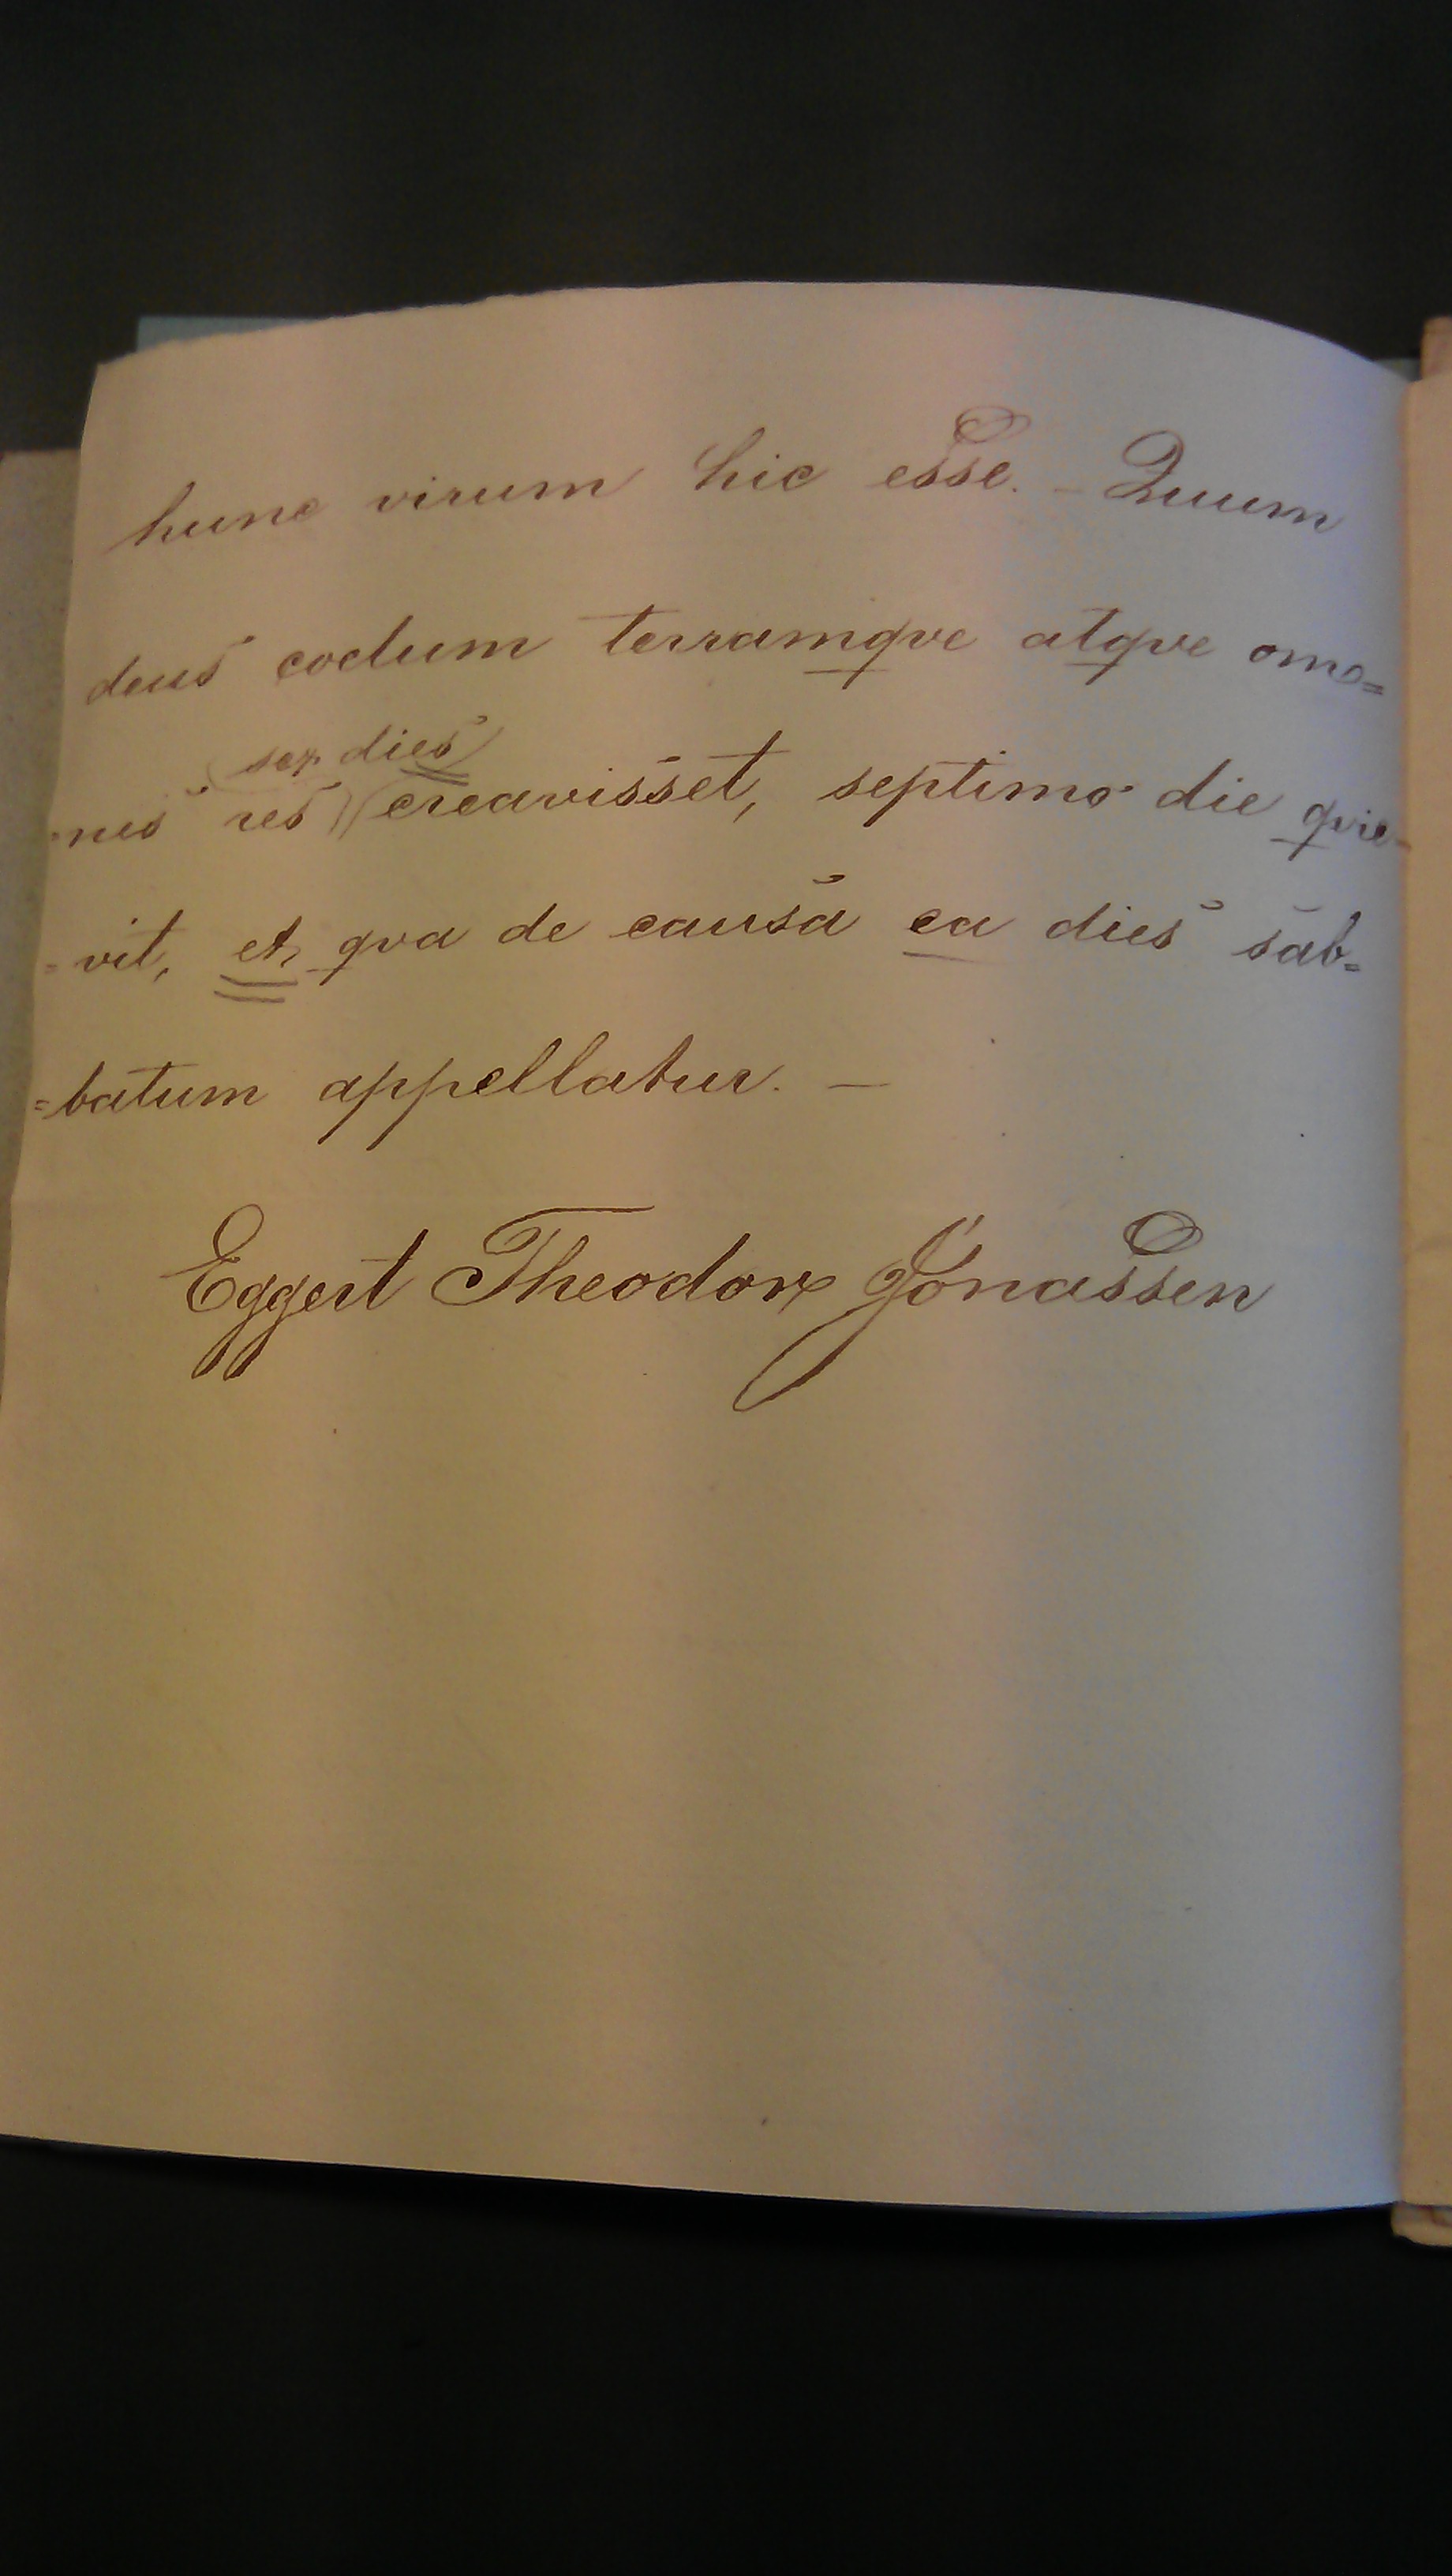 hunc virum hic esse. - Quum
deus coelum terramqve atqve om=
sex dies
=nes res creavisset, septimo die qvie-
=vit, et, qva de causa ea dies sab=
=batum appellatur. —
Eggert Theodor Jónassen